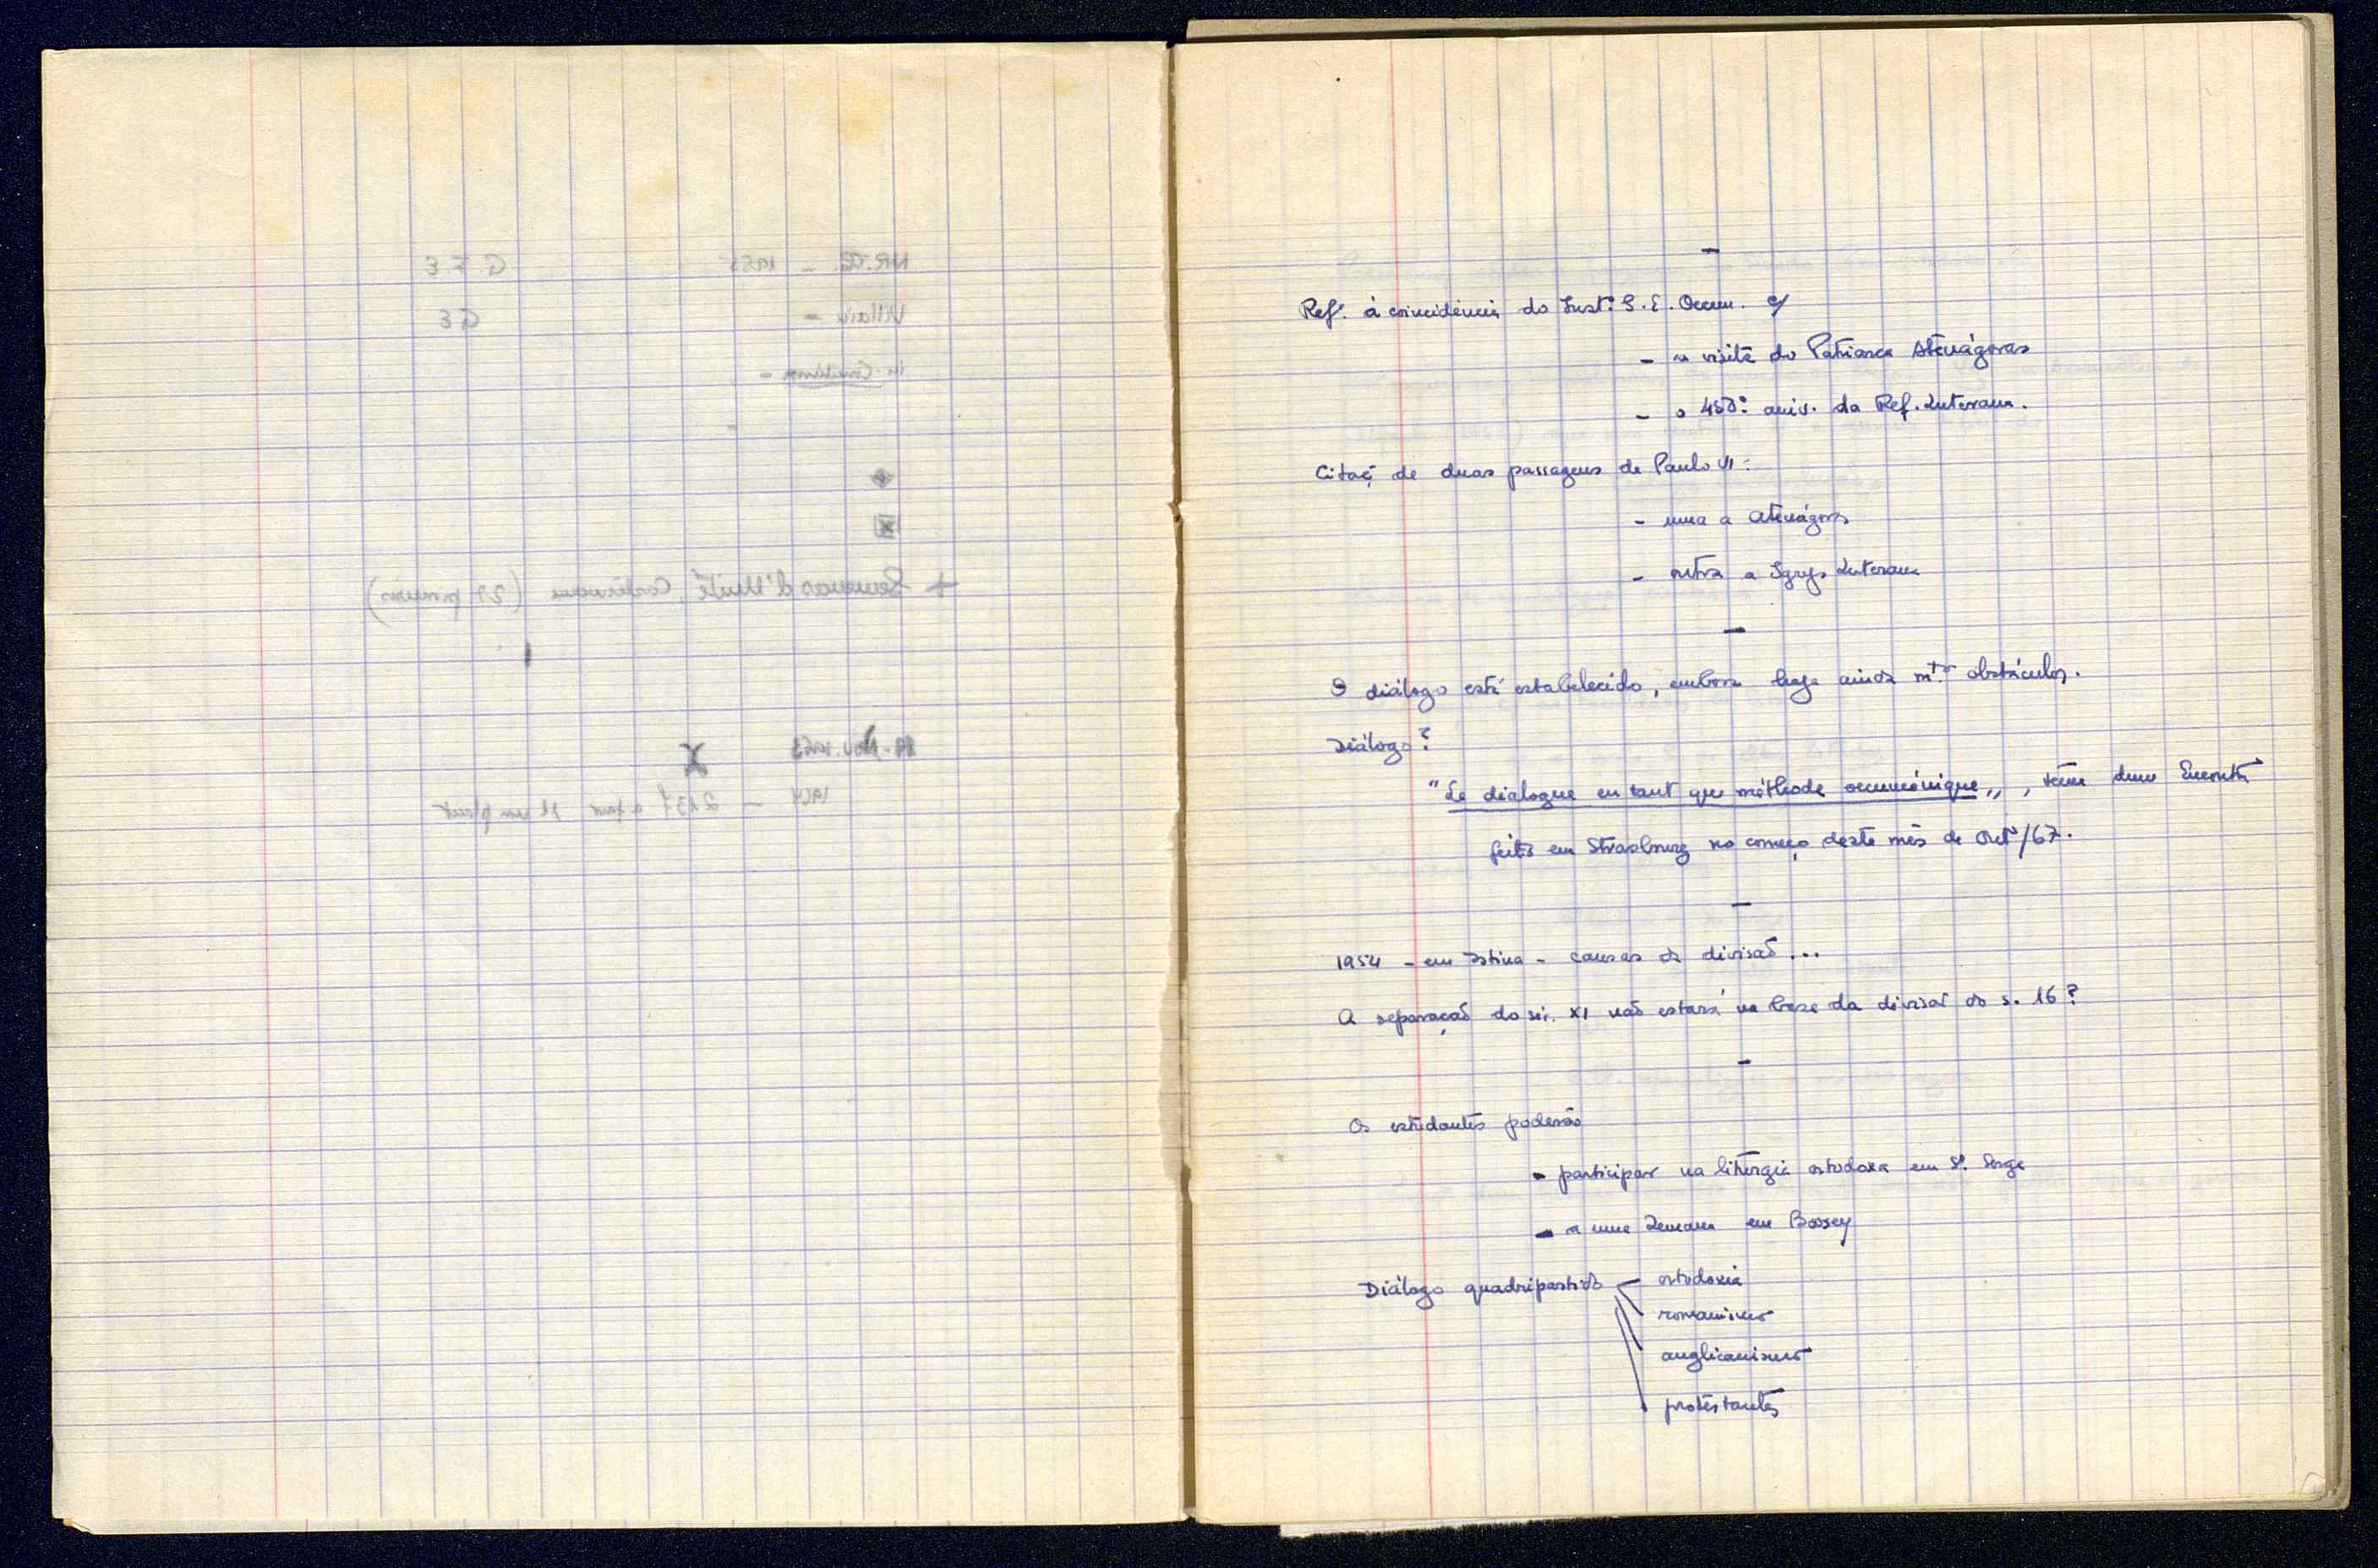 Ref. à coincidência do Inst. S. E. Oecum. c/
- a visita do Patriarca Atenágoras
- o 450º aniv. da Ref. Luterana.
Citaç de duas passagens de Paulo VI:
- uma a Atenágoras
- outra a Luterana
O diálogo está estabelecido, embora haja ainda mtos obstáculos.
Diálogo?
"Le dialogue en tant que méthode oecuménique", tema dum Encontro
feito em Strasbourg no começo deste mês de Outº/67.
1954 - em Istina - causas da divisão...
A separação do séc. XI não estará na base da divisão do s. 16?
Os estudantes poderão
- participar na liturgia ortodoxa em St. Serge
- a uma semana em Bossey
Diálogo quadripartido
ortodoxia
romanismo
anglicanismo
protestantes